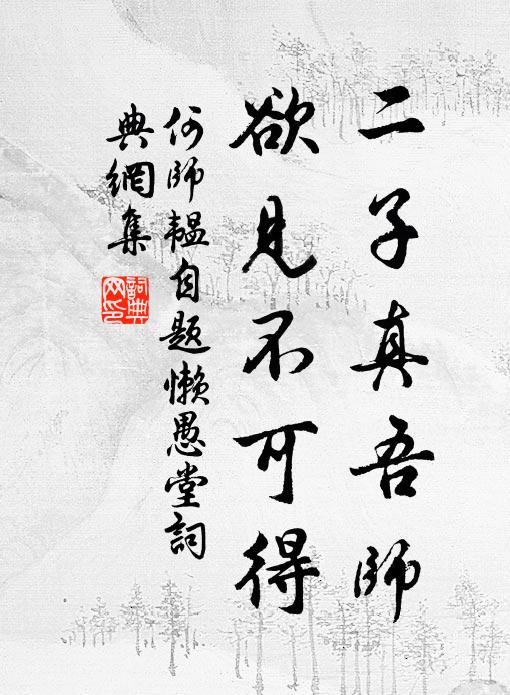 二子真吾師
欲見不可得
何師韞自題懶愚堂詞
典網集
詞典網印